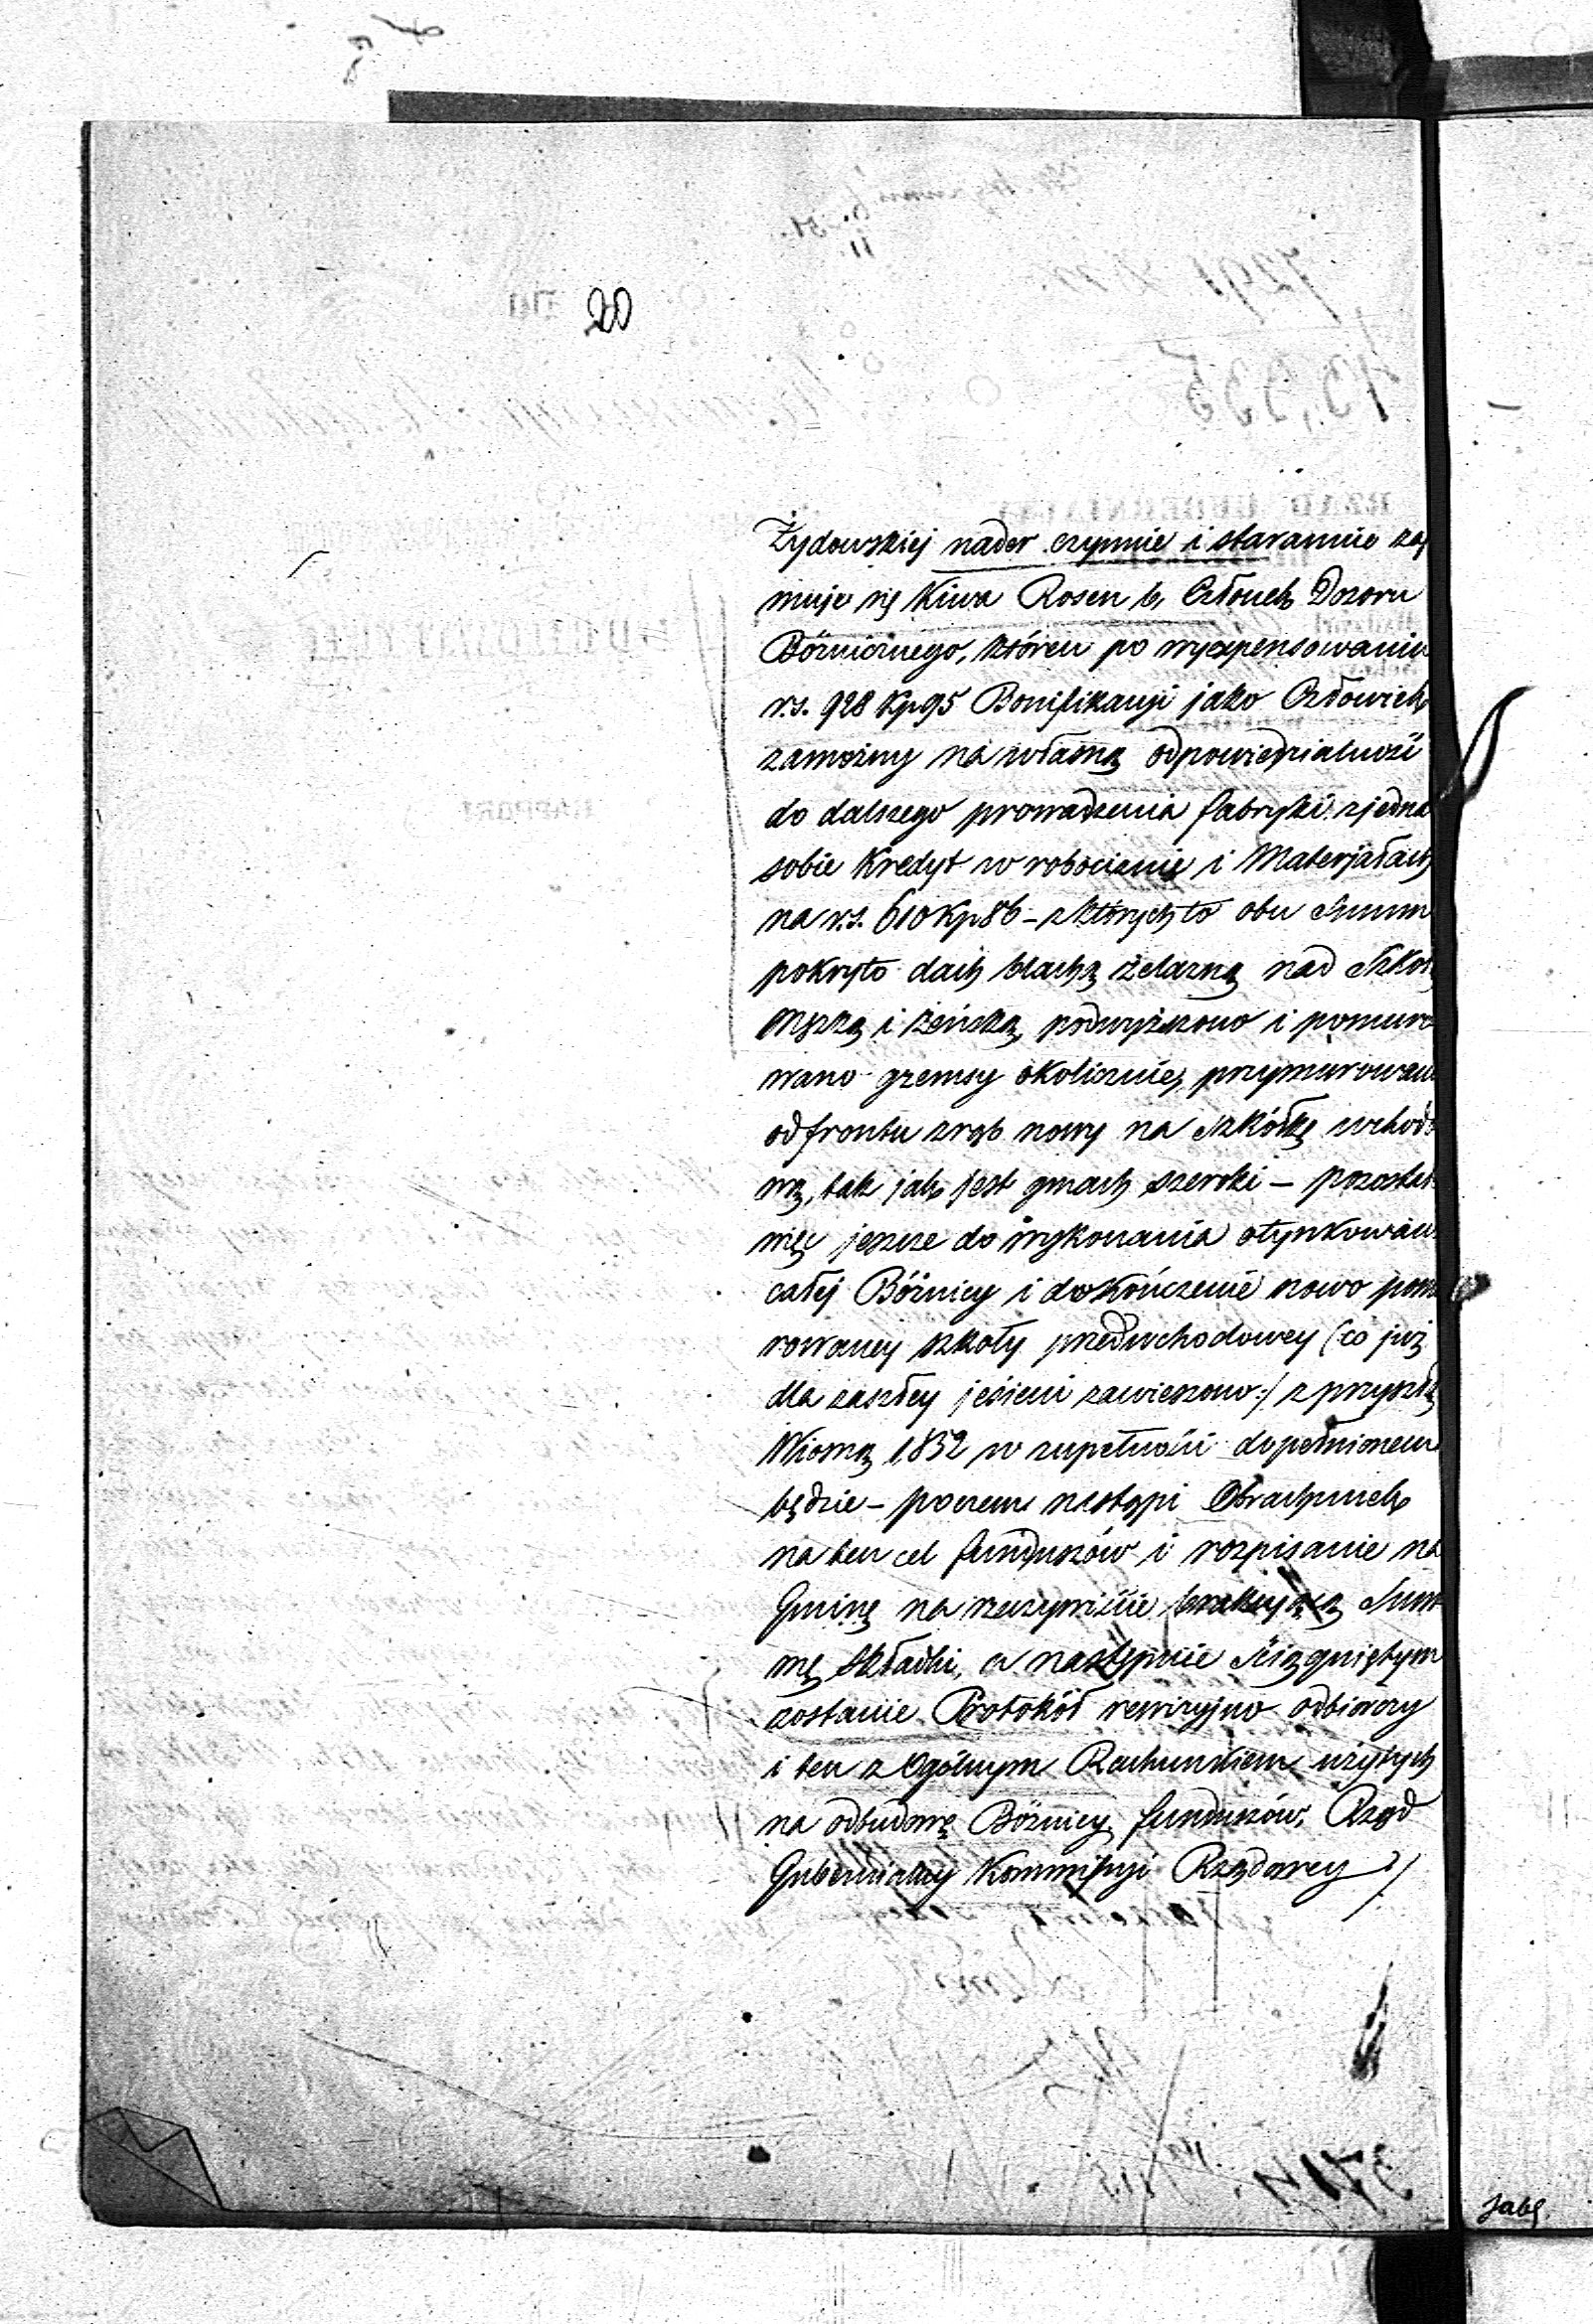 20
Żydowskiej nader czynnie i starannie zaj
muje się Kiwa Rosen b. Członek Dozoru
Bóżniczego, któren po wyexpensowaniu
r.s. 928 kp 95 Bonifikacyi jako Człowiek
zamożny na własną odpowiedzialność
do dalszego prowadzenia fabryki zjedna
sobie Kredyt w robociznie i Materjałach
na r.s. 610 kp 86 – z których to obu Summ
pokryto dach blachą żelazną nad Szkołą
Męzką i żeńską, podwyższono i pomuro
wano gzemsy okolicznie, przymurowano
od frontu zrąb nowy na Szkółkę wchodo
wą, tak jak jest gmach szeroki – pozostał
więc jeszcze do wykonania otynkowan
całej Bóżnicy i dokończenie nowo pomu
rowaney szkoły przedwchodowey (co już
dla zaszłey jesieni zawieszono :/ z przyszłą
Wiosną 1852 w zupełności dopełnionem
będzie – poczem nastąpi Obrachunek
na ten cel funduszów i rozpisanie na
Gminę na rzeczywiście brakującą Sum
mę Składki, a następnie Ściągniętym
zostanie Protokół rewizyjno odbiorczy
i ten z Ogólnym Rachunkiem użytych
na odbudowę Bóżnicy funduszów, Rząd
Gubernialny Kommissyi Rządowey